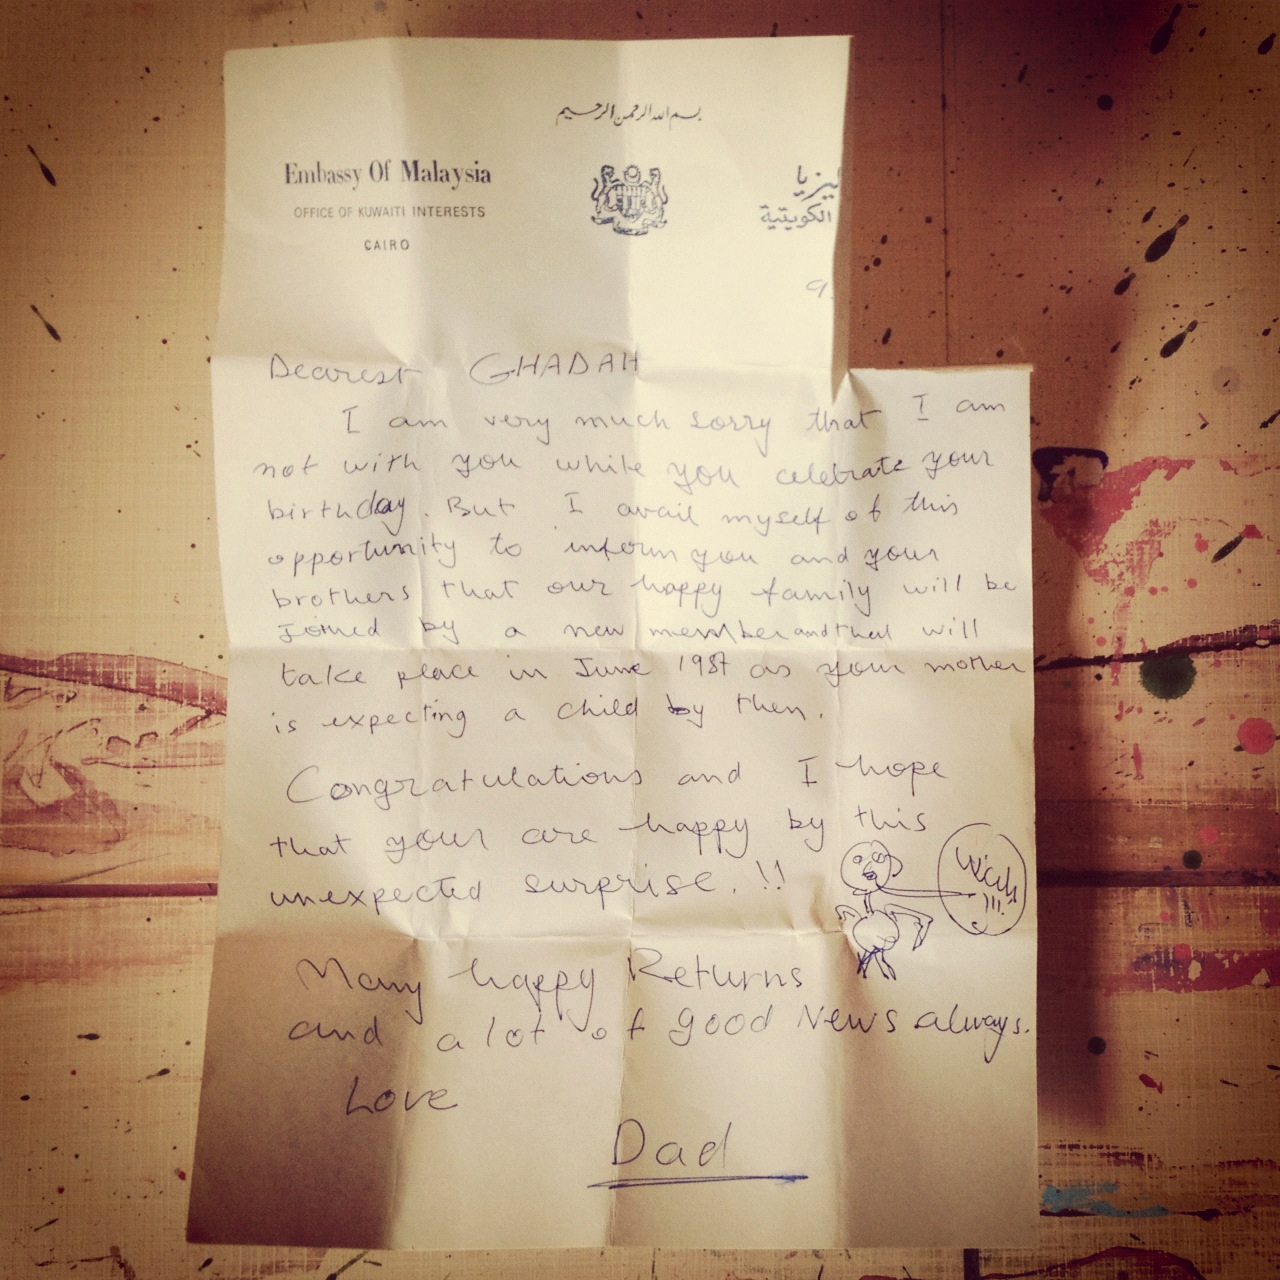 بسم الله الرحمن الرحيم
Embassy Of Malaysia
OFFICE OF KUWAITI INTERESTS
CAIRO
ليزيا
الكويتية
9
Dearest GHADAH
I am very much sorry that I am
not with you while you celebrate your
birthday. But I avail myself of this
opportunity to inform you and your
brothers that our happy family will be
Joined by a new member and that will
take place in June 1987 as your mother
is expecting a child by then.
Congratulations and I hope
that your are happy by this
unexpected surprise. !!
Many happy Returns
and a lot of good News always.
Love
Dad